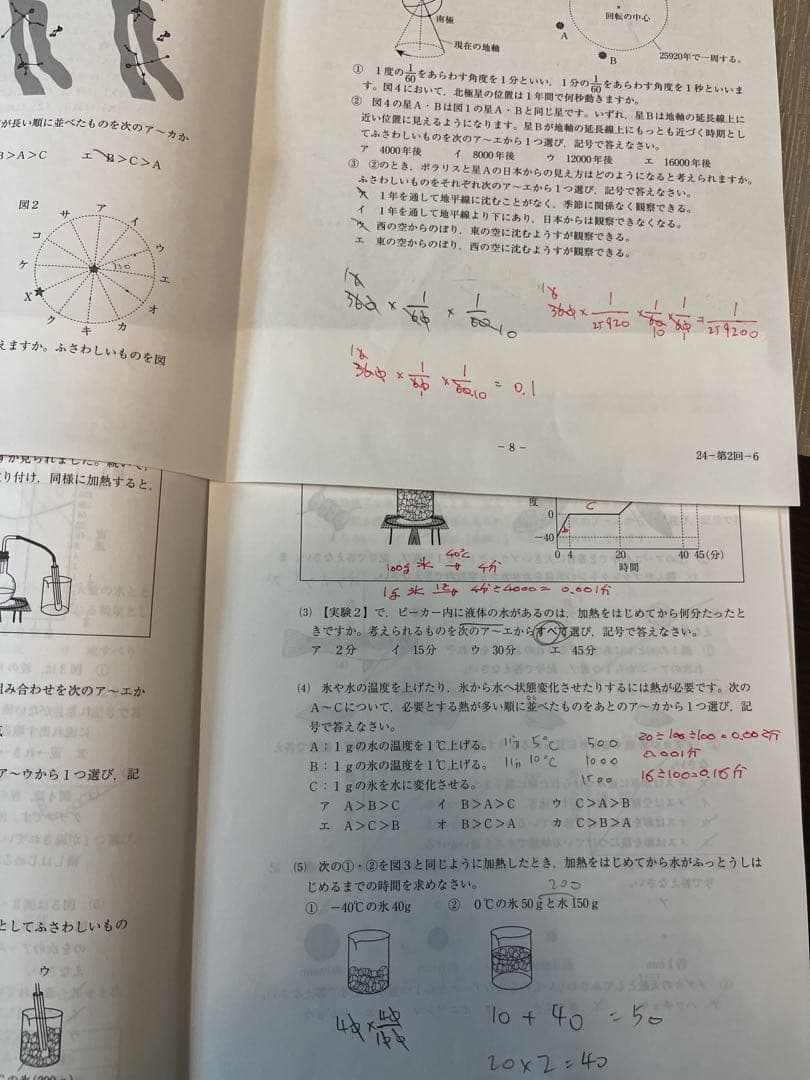 南極
現在の地軸
回転の中心
A
B
25920年で一周する。
① 1度の1/60をあらわす角度を1分といい，1分の1/60をあらわす角度を1秒といいま
す。図4において，北極星の位置は1年間で何秒動きますか。
② 図4の星A・Bは図1の星A・Bと同じ星です。いずれ，星Bは地軸の延長線上に
近い位置に見えるようになります。星Bが地軸の延長線上にもっとも近づく時期とし
てふさわしいものを次のア～エから1つ選び，記号で答えなさい。
ア 4000年後 イ 8000年後 ウ 12000年後 エ 16000年後
③ ②のとき，ポラリスと星Aの日本からの見え方はどのようになると考えられますか。
ふさわしいものをそれぞれ次のア～エから1つ選び，記号で答えなさい。
ア 1年を通して地平線に沈むことがなく，季節に関係なく観察できる。
イ 1年を通して地平線より下にあり，日本からは観察できなくなる。
ウ 西の空からのぼり，東の空に沈むようすが観察できる。
エ 東の空からのぼり，西の空に沈むようすが観察できる。
360 × 1/60 × 1/60 10
360 × 1/25920 × 1/60 × 1/60 = 1/259200
360 × 1/60 × 1/60 = 0.1
－8－
24－第2回－6
が長い順に並べたものを次のア～カか
B＞A＞C エ B＞C＞A
図2
ア
イ
ウ
エ
オ
カ
キ
ク
X
ケ
コ
サ
えますか。ふさわしいものを図
り付け，同様に加熱すると，
組み合わせを次のア～エか
ア～ウから1つ選び，記
としてふさわしいもの
ウ
度
0
－40
C
0 4 20 40 45(分)
時間
100g 氷 40℃→ 4分
1g 氷 1℃→ 4分÷4000 = 0.001分
(3) 【実験2】で，ビーカー内に液体の水があるのは，加熱をはじめてから何分たったと
きですか。考えられるものを次のア～エからすべて選び，記号で答えなさい。
ア 2分 イ 15分 ウ 30分 エ 45分
(4) 氷や水の温度を上げたり，氷から水へ状態変化させたりするには熱が必要です。次の
A～Cについて，必要とする熱が多い順に並べたものをあとのア～カから1つ選び，記
なら
号で答えなさい。
A：1gの水の温度を1℃上げる。 5℃ 500
B：1gの氷の温度を1℃上げる。 10℃ 1000
C：1gの氷を水に変化させる。 1500
20÷100÷100=0.002分
0.001分
16÷100=0.16分
ア A＞B＞C イ B＞A＞C ウ C＞A＞B
エ A＞C＞B オ B＞C＞A カ C＞B＞A
(5) 次の①・②を図3と同じように加熱したとき，加熱をはじめてから水がふっとうしは
じめるまでの時間を求めなさい。
200
① －40℃の氷40g ② 0℃の氷50gと水150g
40 × 40/100
10 + 40 = 50
20×2=40